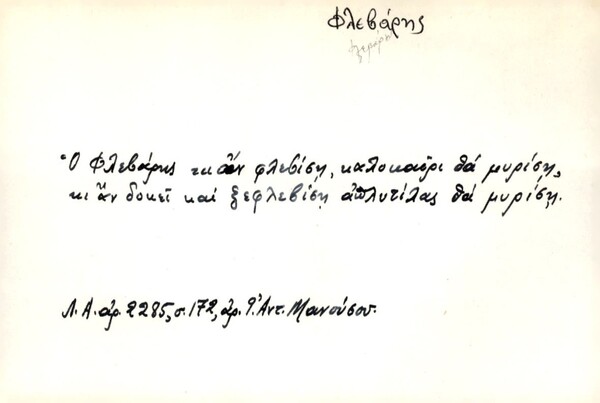 Φλεβάρης
Ὁ Φλεβάρης κι ἄν φλεβίσῃ, καλοκαῖρι θά μυρίσῃ,
κι ἄν δοκεῖ καί ξεφλεβίσῃ ἀπλυτίλας θά μυρίσῃ.
Λ.Α. ἀρ. 2285, σ. 172, ἀρ. 9. Ἀντ. Μανούσου.